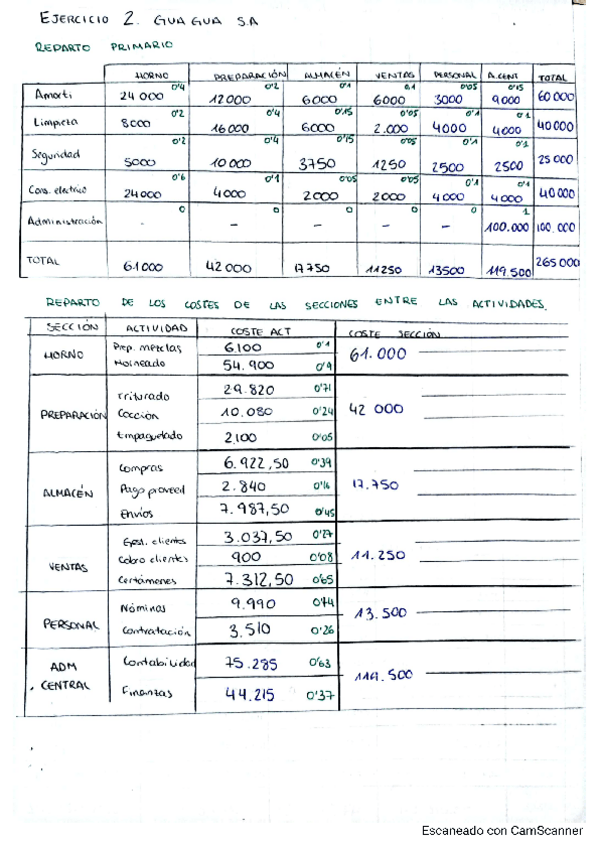 EJERCICIO 2. GUA GUA S.A
REPARTO PRIMARIO
HORNO PREPARACIÓN ALMACÉN VENTAS PERSONAL A.CENT TOTAL
Amorti 24 000 0'4 12 000 0'2 6000 0'1 6000 0'1 3000 0'05 9.000 0'15 60 000
Limpieza 8000 0'2 16 000 0'4 6000 0'15 2.000 0'05 4000 0'1 4000 0'1 40 000
Seguridad 5000 0'2 10 000 0'4 3750 0'15 1250 0'05 2500 0'1 2500 0'1 25 000
Cons. electrico 24000 0'6 4000 0'1 2000 0'05 2000 0'05 4 000 0'1 4 000 0'1 40 000
Administración - 0 - 0 - 0 - 0 - 0 100.000 1 100.000
TOTAL 61 000 42 000 17 750 11250 13500 119.500 265 000
REPARTO DE LOS COSTES DE LAS SECCIONES ENTRE LAS ACTIVIDADES.
SECCIÓN ACTIVIDAD COSTE ACT COSTE SECCIÓN
HORNO Prep. mezclas 6.100 0'1 61.000
Molineado 54.900 0'9
PREPARACIÓN Triturado 29.820 0'71 42 000
Cocción 10.080 0'24
Empaquetado 2.100 0'05
ALMACÉN Compras 6.922,50 0'39 17.750
Pago proveed 2.840 0'16
Envíos 7.987,50 0'45
VENTAS Gest. clientes 3.037,50 0'27 11.250
Cobro clientes 900 0'08
Certámenes 7.312,50 0'65
PERSONAL Nóminas 9.990 0'74 13.500
Contratación 3.510 0'26
ADM CENTRAL Contabilidad 75.285 0'63 119.500
Finanzas 44.215 0'37
Escaneado con CamScanner